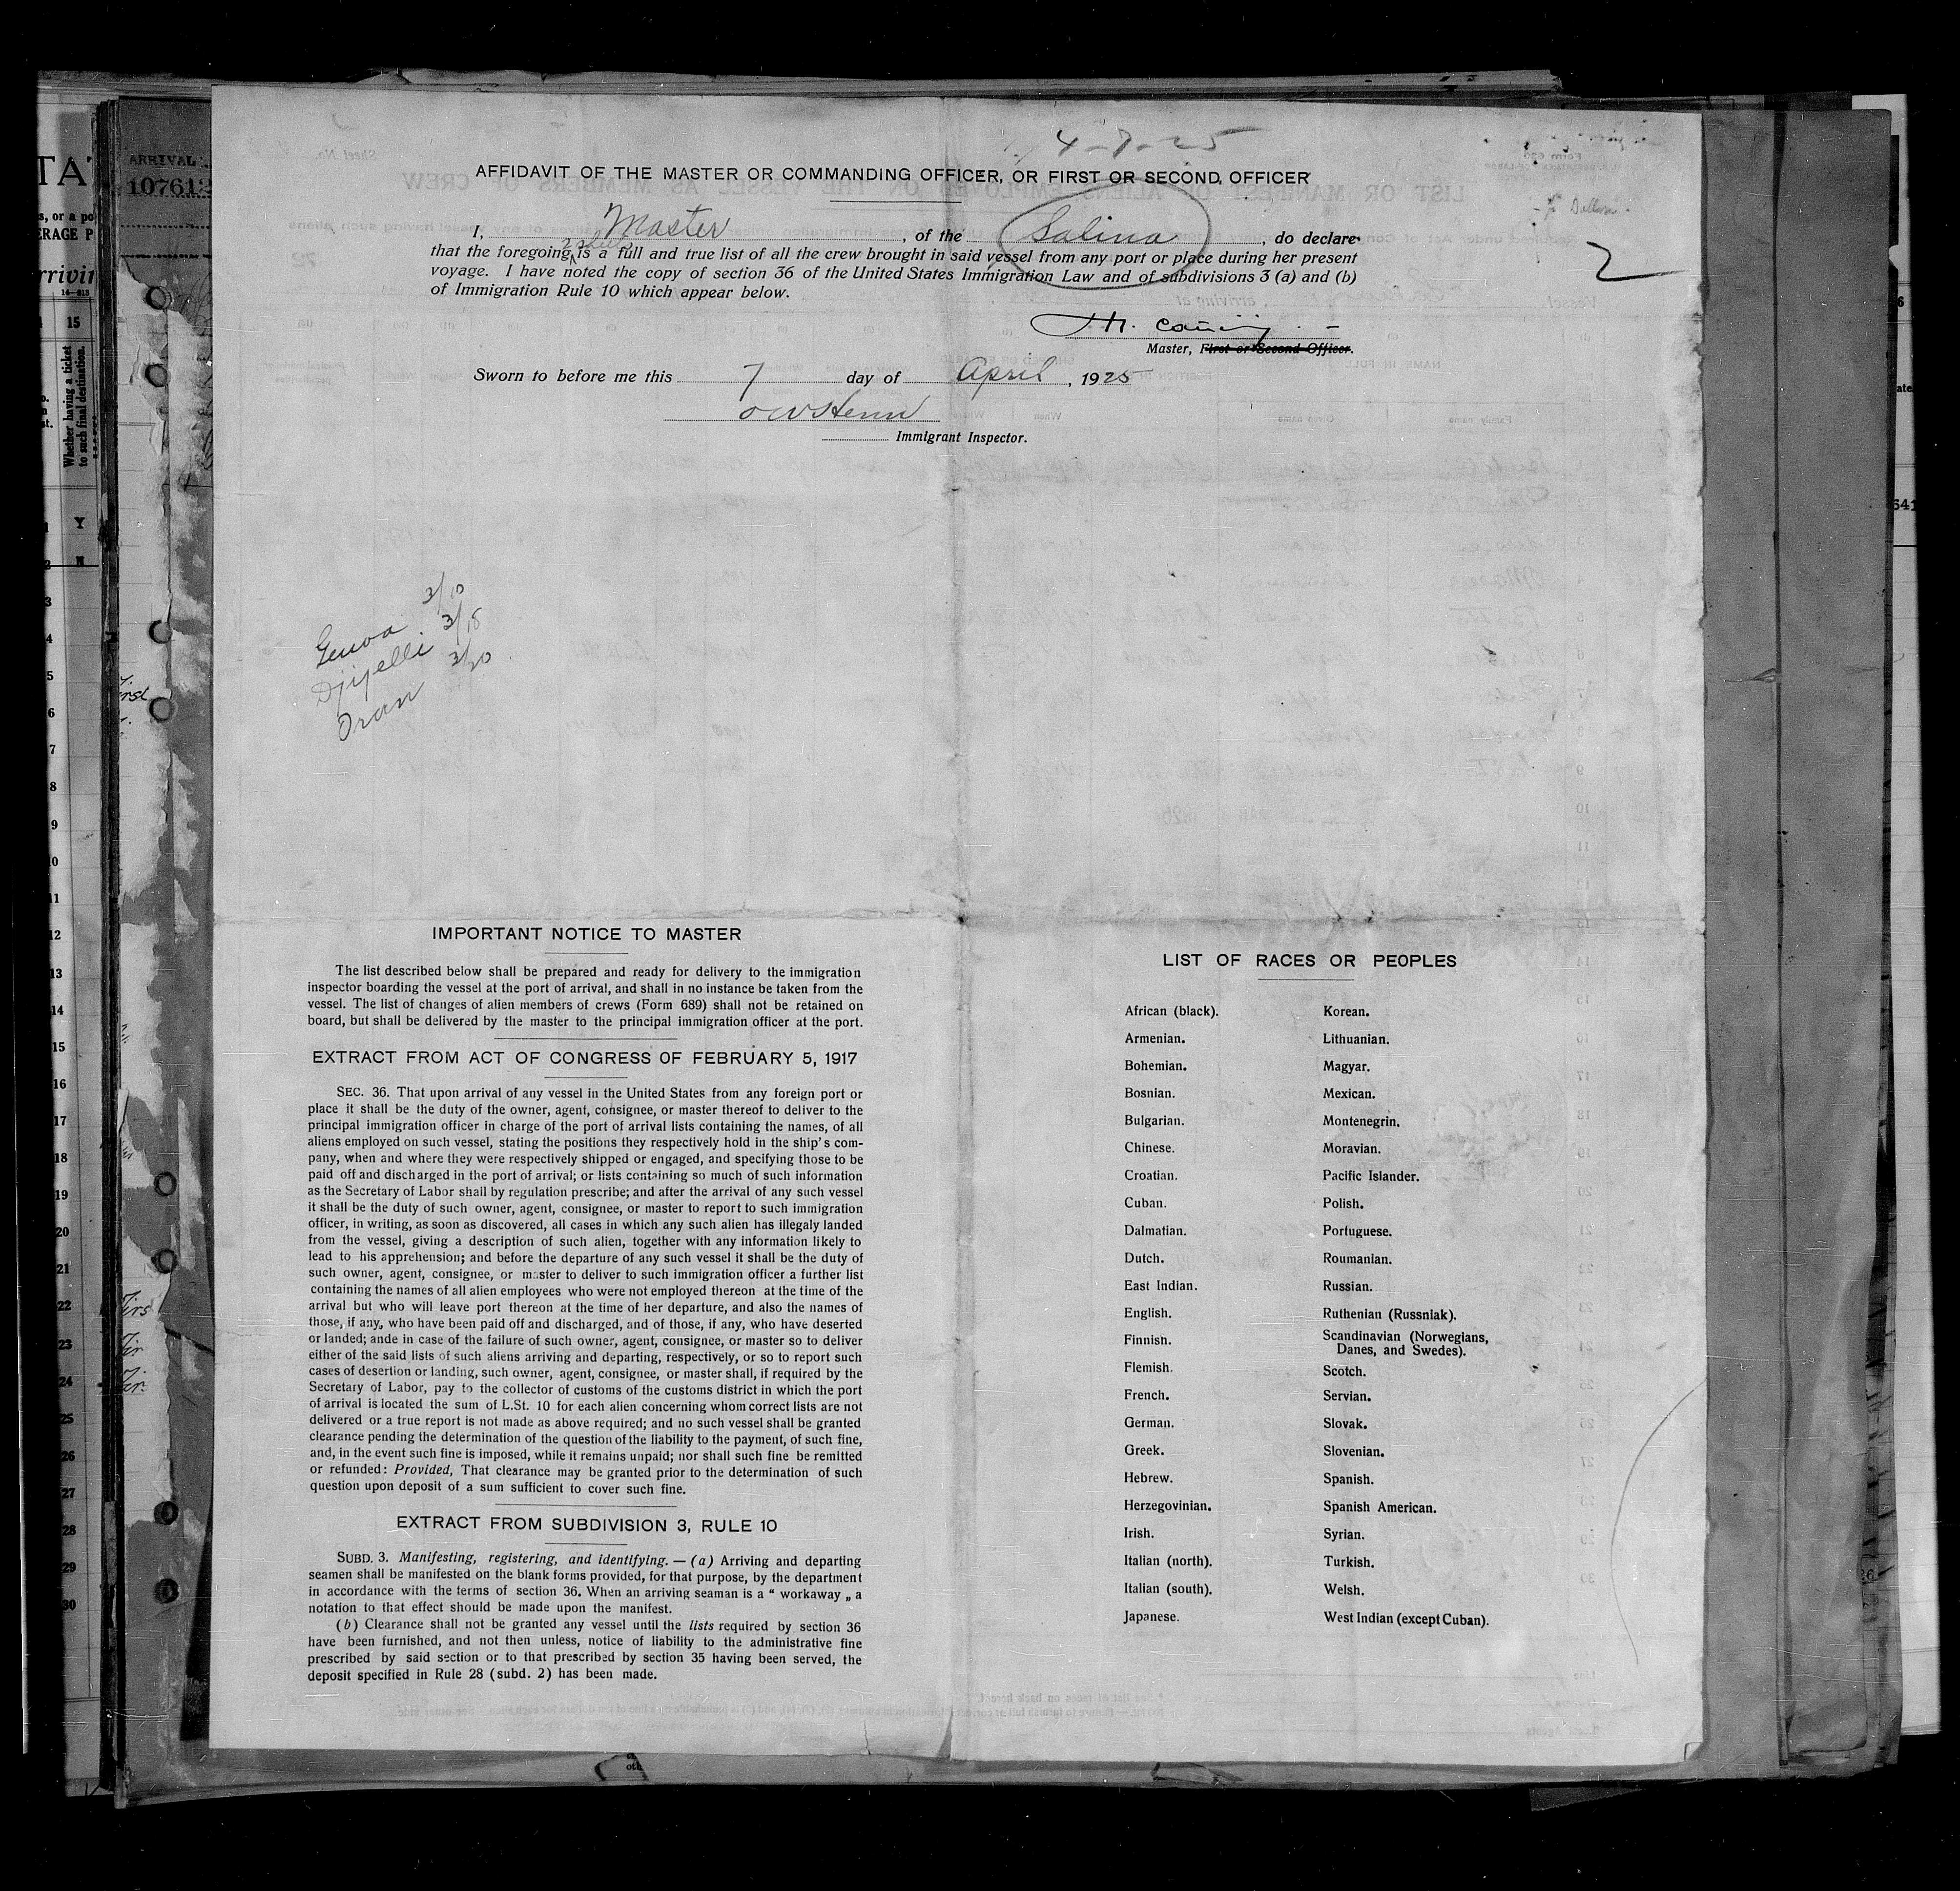 4-7-25
AFFIDAVIT OF THE MASTER OR COMMANDING OFFICER, OR FIRST OR SECOND OFFICER
I, Master, of the Salina, do declare
2 sheets
that the foregoing is a full and true list of all the crew brought in said vessel from any port or place during her present
voyage. I have noted the copy of section 36 of the United States Immigration Law and of subdivisions 3 (a) and (b)
of Immigration Rule 10 which appear below.
2
Master, First or Second Officer.
Sworn to before me this 7 day of April, 1925
Immigrant Inspector.
Genoa 3/10
Djijelli 3/18
Oran 3/20
IMPORTANT NOTICE TO MASTER
The list described below shall be prepared and ready for delivery to the immigration
inspector boarding the vessel at the port of arrival, and shall in no instance be taken from the
vessel. The list of changes of alien members of crews (Form 689) shall not be retained on
board, but shall be delivered by the master to the principal immigration officer at the port.
EXTRACT FROM ACT OF CONGRESS OF FEBRUARY 5, 1917
SEC. 36. That upon arrival of any vessel in the United States from any foreign port or
place it shall be the duty of the owner, agent, consignee, or master thereof to deliver to the
principal immigration officer in charge of the port of arrival lists containing the names, of all
aliens employed on such vessel, stating the positions they respectively hold in the ship's com-
pany, when and where they were respectively shipped or engaged, and specifying those to be
paid off and discharged in the port of arrival; or lists containing so much of such information
as the Secretary of Labor shall by regulation prescribe; and after the arrival of any such vessel
it shall be the duty of such owner, agent, consignee, or master to report to such immigration
officer, in writing, as soon as discovered, all cases in which any such alien has illegaly landed
from the vessel, giving a description of such alien, together with any information likely to
lead to his apprehension; and before the departure of any such vessel it shall be the duty of
such owner, agent, consignee, or master to deliver to such immigration officer a further list
containing the names of all alien employees who were not employed thereon at the time of the
arrival but who will leave port thereon at the time of her departure, and also the names of
those, if any, who have been paid off and discharged, and of those, if any, who have deserted
or landed; ande in case of the failure of such owner, agent, consignee, or master so to deliver
either of the said lists of such aliens arriving and departing, respectively, or so to report such
cases of desertion or landing, such owner, agent, consignee, or master shall, if required by the
Secretary of Labor, pay to the collector of customs of the customs district in which the port
of arrival is located the sum of L.St. 10 for each alien concerning whom correct lists are not
delivered or a true report is not made as above required; and no such vessel shall be granted
clearance pending the determination of the question of the liability to the payment, of such fine,
and, in the event such fine is imposed, while it remains unpaid; nor shall such fine be remitted
or refunded: Provided, That clearance may be granted prior to the determination of such
question upon deposit of a sum sufficient to cover such fine.
EXTRACT FROM SUBDIVISION 3, RULE 10
SUBD. 3. Manifesting, registering, and identifying. — (a) Arriving and departing
seamen shall be manifested on the blank forms provided, for that purpose, by the department
in accordance with the terms of section 36. When an arriving seaman is a “ workaway „ a
notation to that effect should be made upon the manifest.
(b) Clearance shall not be granted any vessel until the lists required by section 36
have been furnished, and not then unless, notice of liability to the administrative fine
prescribed by said section or to that prescribed by section 35 having been served, the
deposit specified in Rule 28 (subd. 2) has been made.
LIST OF RACES OR PEOPLES
African (black). Korean.
Armenian. Lithuanian.
Bohemian. Magyar.
Bosnian. Mexican.
Bulgarian. Montenegrin.
Chinese. Moravian.
Croatian. Pacific Islander.
Cuban. Polish.
Dalmatian. Portuguese.
Dutch. Roumanian.
East Indian. Russian.
English. Ruthenian (Russniak).
Finnish. Scandinavian (Norwegians,
Danes, and Swedes).
Flemish. Scotch.
French. Servian.
German. Slovak.
Greek. Slovenian.
Hebrew. Spanish.
Herzegovinian. Spanish American.
Irish. Syrian.
Italian (north). Turkish.
Italian (south). Welsh.
Japanese. West Indian (except Cuban).
ARRIVAL
107612
15
Whether having a ticket
to such final destination.